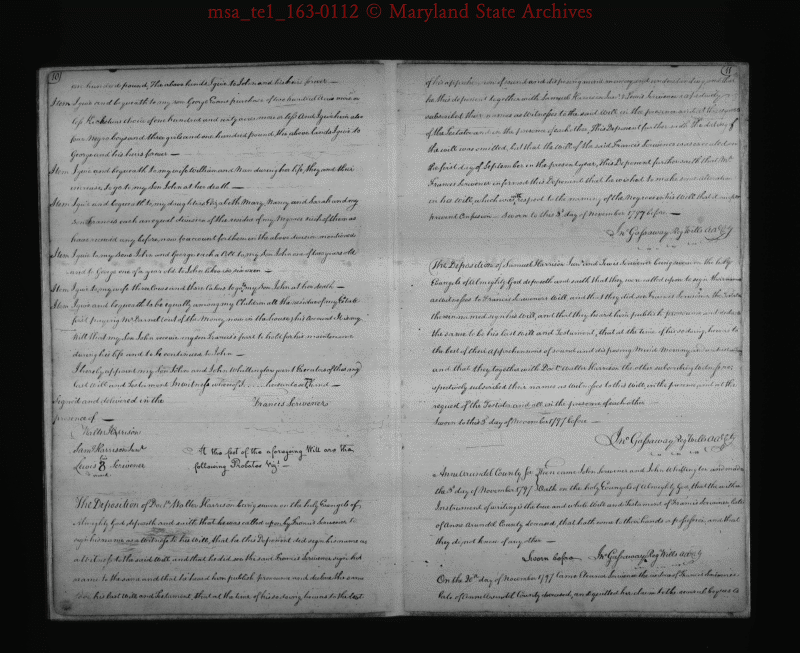 msa_te1_163-0112 © Maryland State Archives
10
one hundred pound, The above lands I give to John and his heirs forever —
Item I give and bequeath to my son George Evans purchase of two hundred Acres more or
less above of one hundred and sixty acres more or less And I give him also
four Negroe boys and three girls and one hundred pound, the above lands I give to
George and his heirs forever —
Item I give and bequeath to my wife William and Nan during her life, they and their
increase to go to my Son John at her death —
Item I give and bequeath to my daughters Elizabeth Mary, Nancy and Sarah and my
son Francis each an equal division of the residue of my Negroes such of them as
have received any before, now to account for them in the above division mentioned
Item I give to my Sons John and George each a
and to George one of a year old to John
Item I give to my wife three and then to go to my Son John at her death —
Item I give and bequeath to be equally among my Children all the residue of my Estate
first paying out of the Money now in the house, his Account It is my
Will that my Son John my son Francis's part to hold for his maintenance
during his life and to be continued to John —
I hereby appoint my Son John and John Whittington joint Executors of this my
last Will and testament In witness whereof I have hereunto set my hand —
Signed and delivered in the
Francis Scrivener
presence of —
Walter Harrison
Saml Harrison Junr
Lewis 8 Scrivener
At the foot of the aforegoing Will are the
following Probates Vizt —
The Deposition of Doctr Walter Harrison being sworn on the holy Evangels of
Almighty God deposeth and saith that he was called upon by Francis Scrivener to
sign his name as a Witness to his Will, that he this Deponent did sign his name as
a Witness to the said Will and that he did see the said Francis Scrivener sign his
name to the same and that he heard him publish pronounce and declare the same
to be his last Will and Testament, that at the time of his so doing he was to the best
11
of his apprehension of sound and disposing mind memory and understanding, and that
he this deponent together with Samuel Harrison Junr & Lewis Scrivener respectively
subscribed their names as Witnesses to the said Will in the presence and at the request
of the Testator and in the presence of each other, This Deponent further saith the dating of
the will was omitted, but that the Will of the said Francis Scrivener was executed on
the first day of September in the present year, This Deponent further saith that Mr.
Francis Scrivener informed this Deponent that he wished to make some alteration
in his Will, which was with respect to the naming of the Negroes in his Will, that it might
prevent Confusion — Sworn to this 8th day of November 1797 before —
Jno Gassaway Reg Wills A. A. Cy
The Deposition of Samuel Harrison Junr and Lewis Scrivener being sworn on the holy
Evangels of Almighty God deposeth and saith that they were called upon to sign their names
as Witnesses to Francis Scrivener's Will, and that they did see Francis Scrivener the Testator
therein named sign his Will, and that they heard him publish pronounce and declare
the same to be his last Will and Testament, that at the time of his so doing he was to
the best of their apprehensions of sound and disposing Mind Memory and understanding
and that they together with Doctr Walter Harrison the other subscribing Witness, res-
pectively subscribed their names as Witnesses to this Will, in the presence and at the
request of the Testator and all in the presence of each other
Sworn to this 8th day of November 1797 before —
Jno Gassaway Reg Wills A. A. Cy
Anne Arundel County Sct Then came John Scrivener and John Whittington and made
the 8th day of November 1797 Oath on the holy Evangels of Almighty God, that the within
Instrument of writing is the true and whole Will and Testament of Francis Scrivener, late
of Anne Arundel County deceased, that hath come to their hands or possession, and that
they do not know of any other —
Sworn before Jno Gassaway Reg Wills A. A. Cy
On the 20th day of November 1797 came Scrivener the widow of Francis Scrivener
late of Anne Arundel County deceased, and quitted her claim to the several bequests